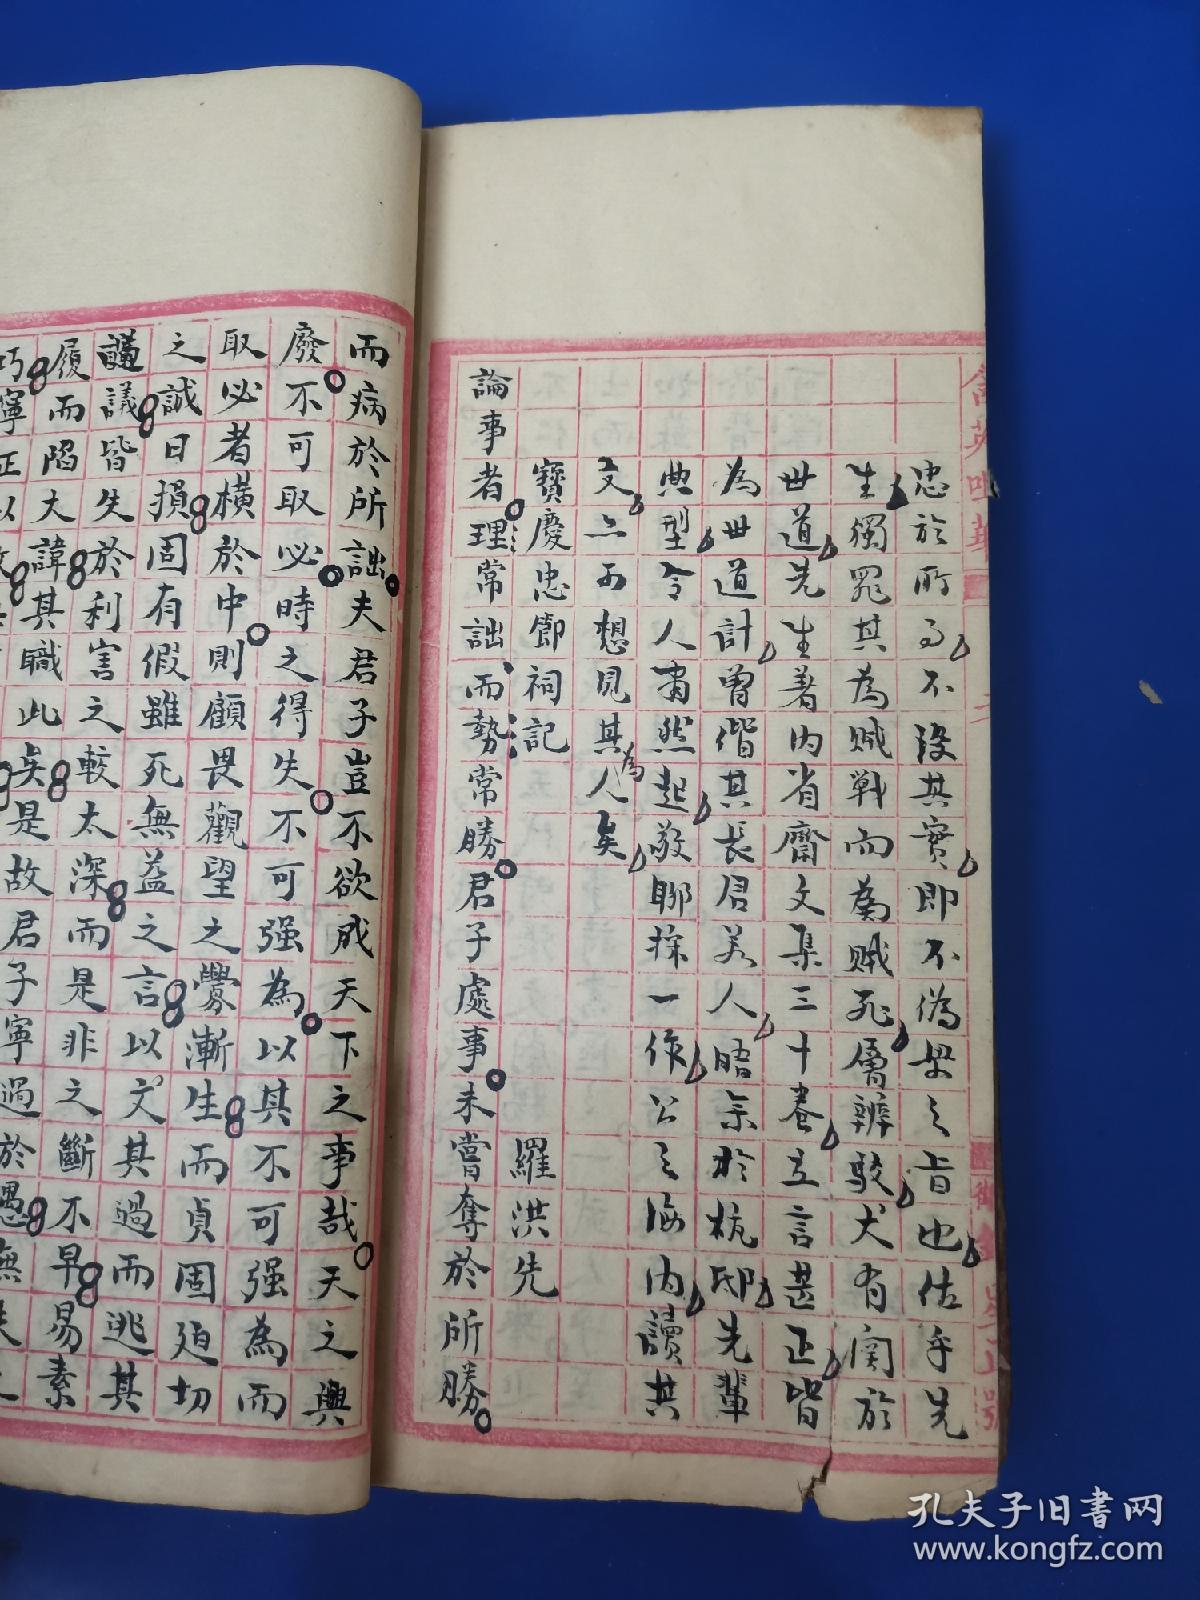 忠於所事不沒其實即不偽學之旨也佐乎先
生獨罪其為賊戰而為賊死屬辨駁尤有関於
世道先生著内省齋文集三十卷立言甚正皆
為世道計曾偕其長君美人晤余於杭邸先輩
典型令人肅然起敬聊採一作公之海内讀其
文亦可想見其為人矣
寶慶忠節祠記
羅洪先
論事者理常詘而勢常勝君子處事未嘗奪於所勝
而病於所詘夫君子豈不欲成天下之事哉天之興
廢不可取必時之得失不可强為以其不可强為而
取必者橫於中則顧畏觀望之釁漸生而貞固廹切
之誠日損固有假雖死無益之言以文其過而逃其
議皆失於利害之較太深而是非之斷不早易素
履而陷大諱其職此矣是故君子寧過於愚
孔夫子旧书网
www.kongfz.com